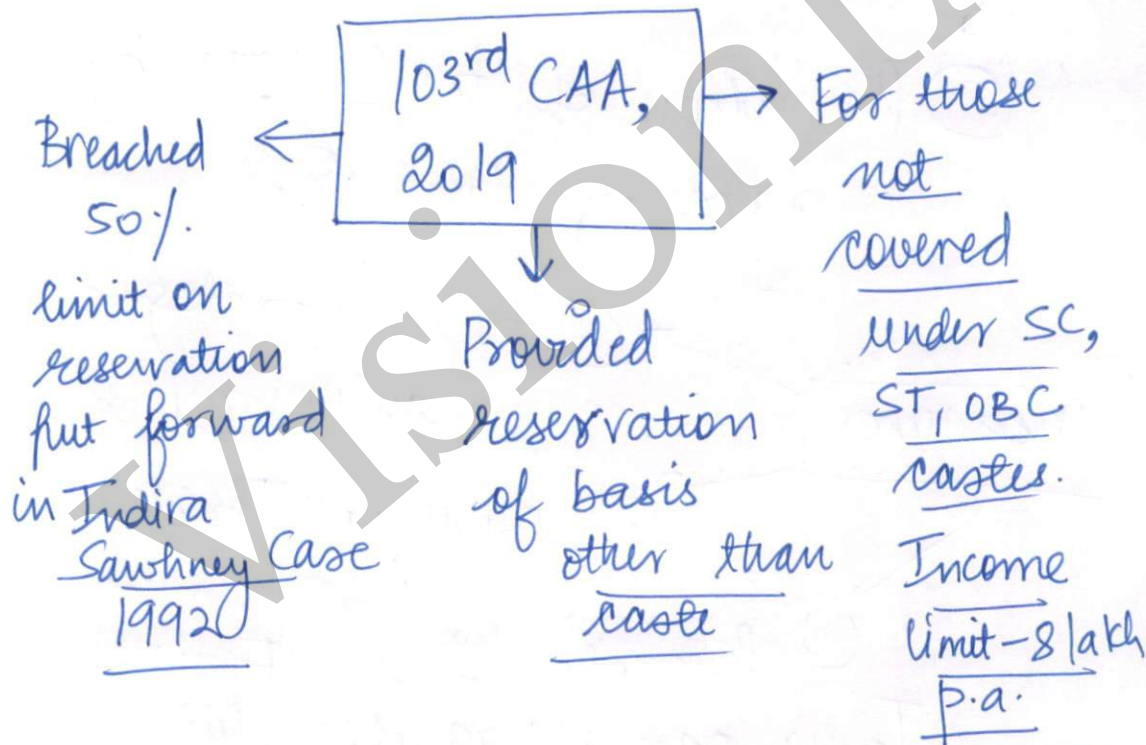 103rd CAA,
2019
Breached
50%.
limit on
reservation
put forward
in Indira
Sawhney Case
1992
Provided
reservation
of basis
other than
caste
For those
not
covered
under SC,
ST, OBC
castes.
Income
limit-8 lakh
p.a.
Vision